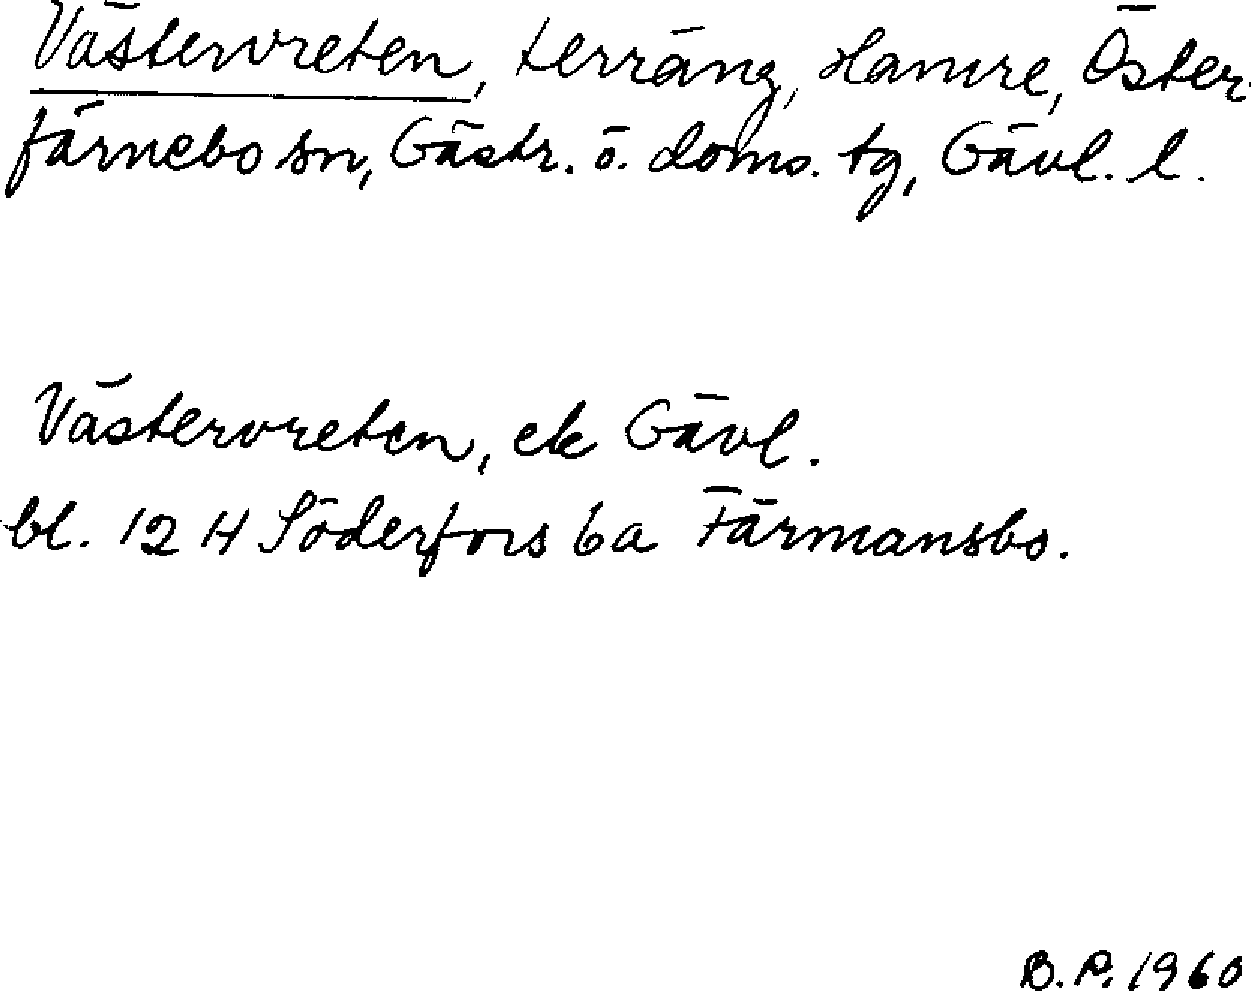 Västervreten, terräng, Hamre, Öster-
färnebo sn, Gästr. ö. doms. tg, Gävl. l.
Västervreten, ek Gävl.
bl. 12 H Söderfors 6a Färmansbo.
B. P. 1960